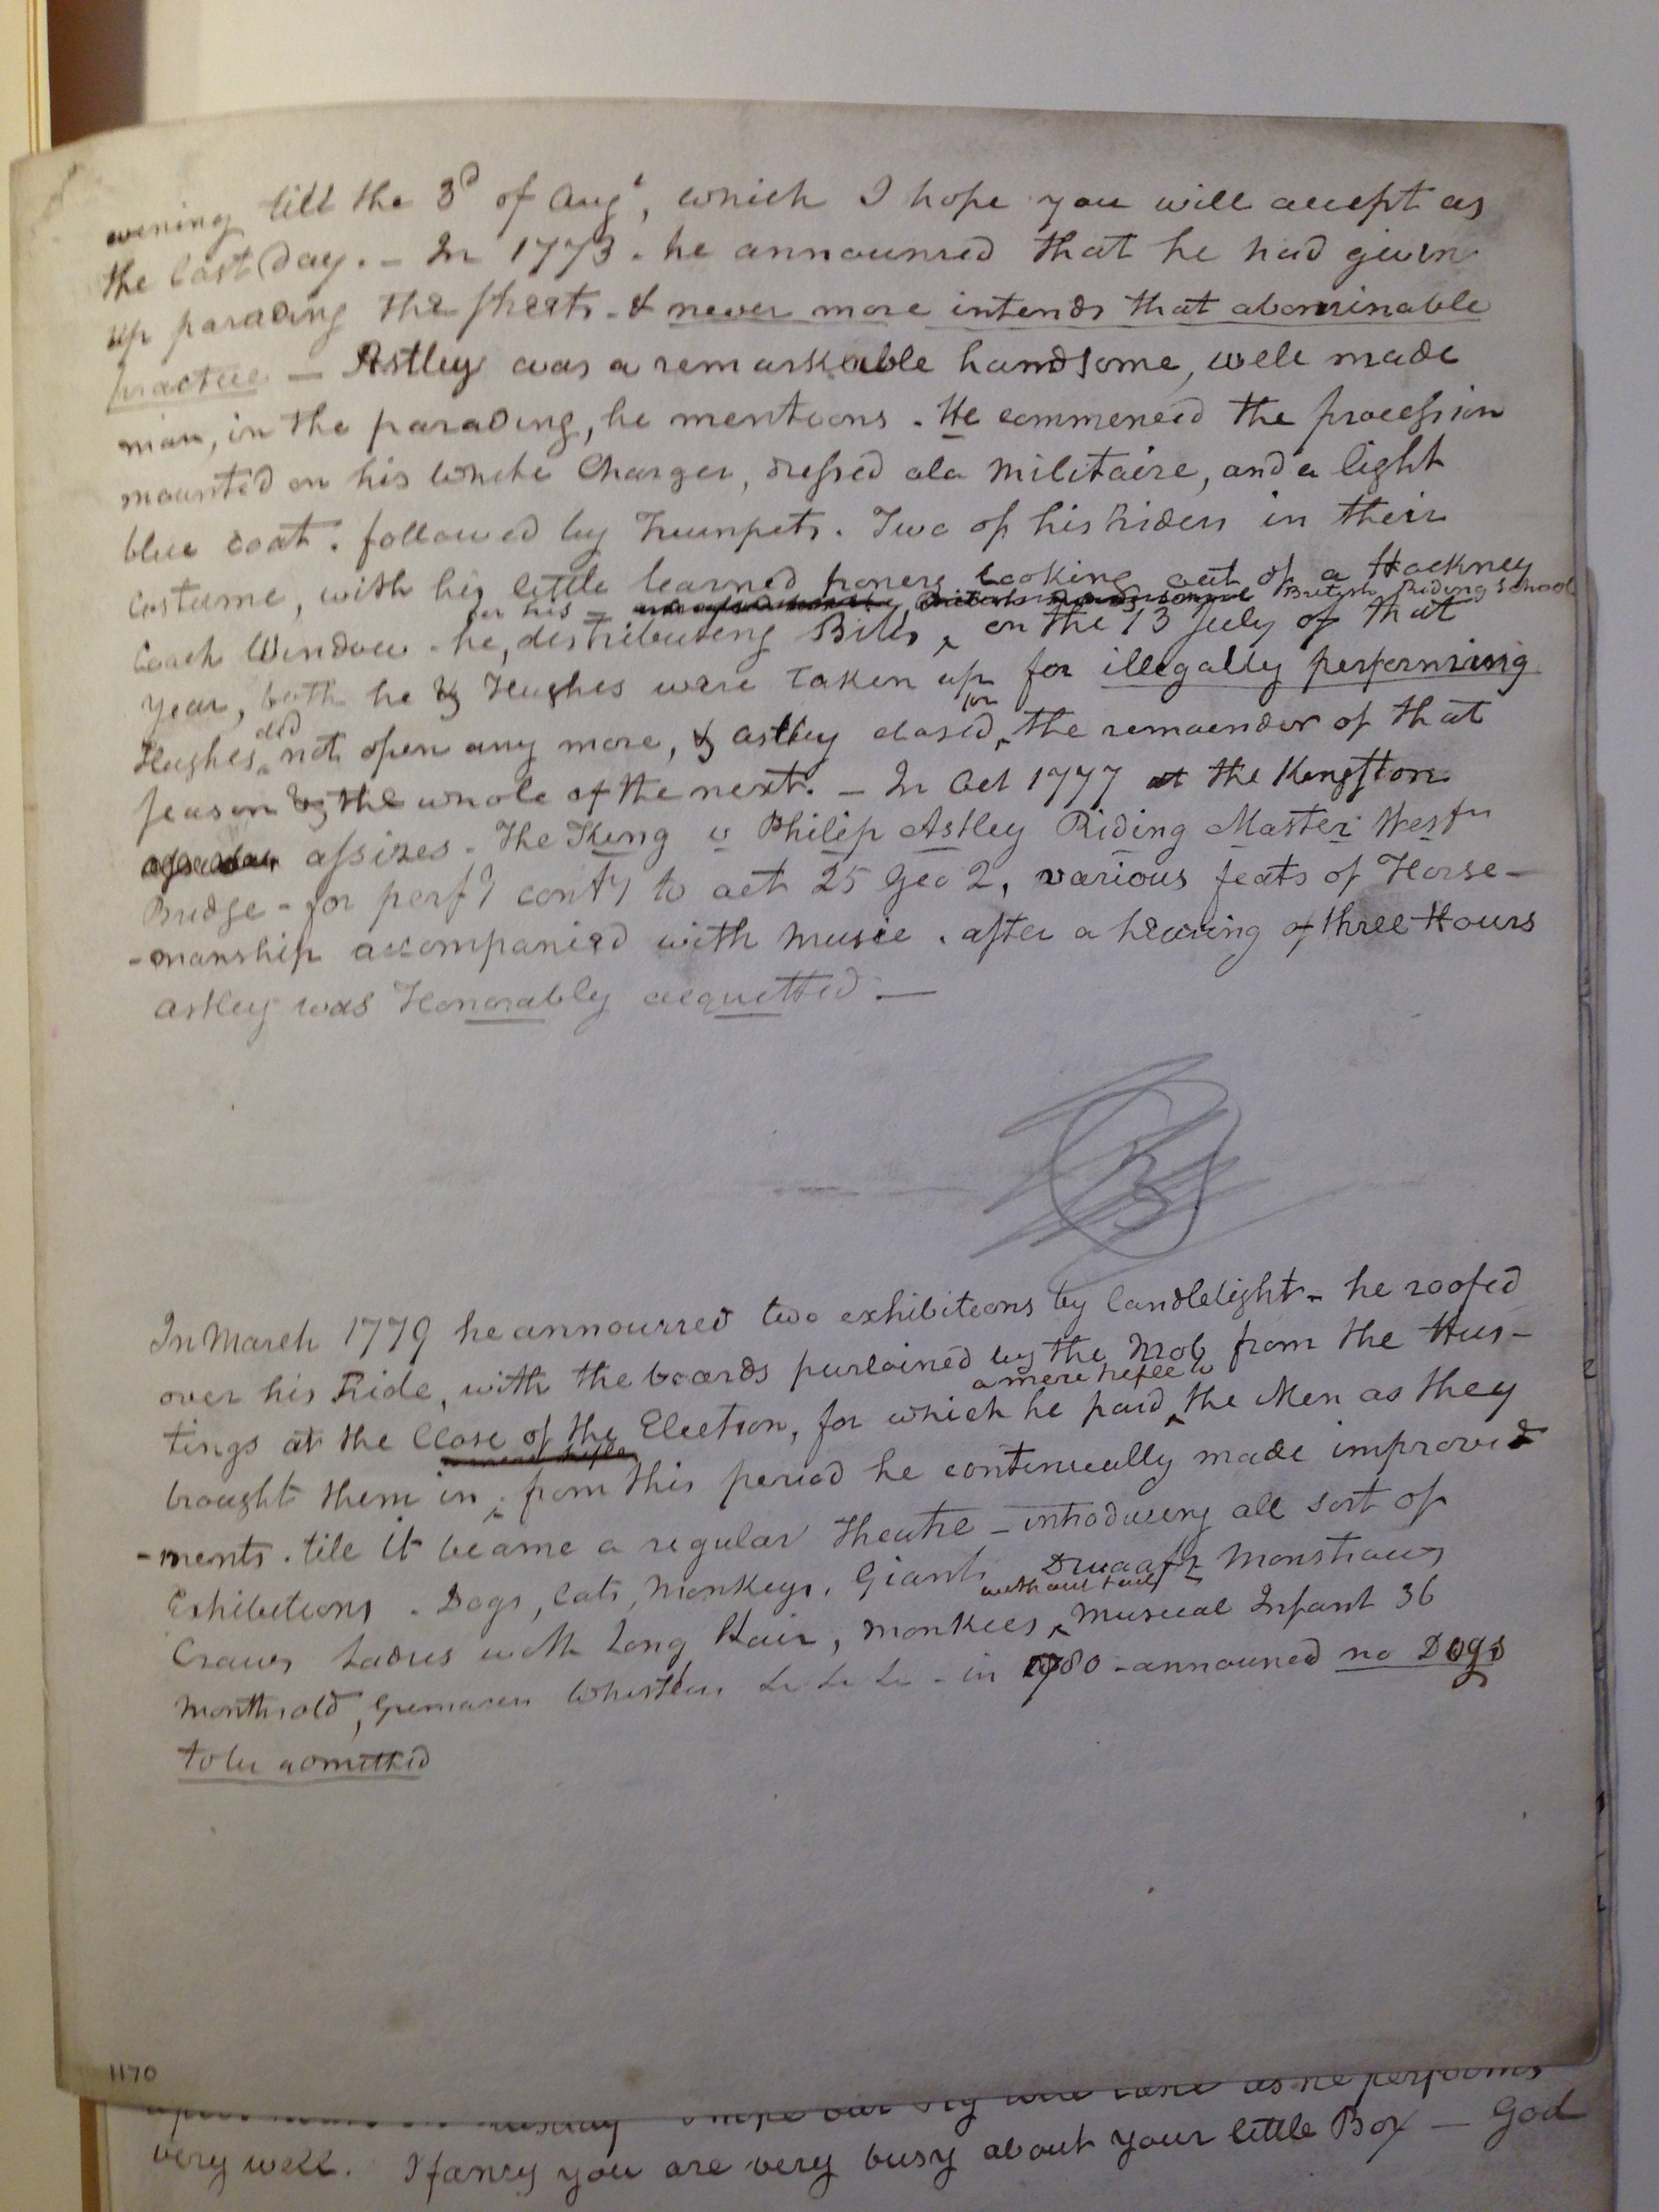 evening till the 3d of Augt, which I hope you will accept as
the last day. - In 1773. he announced that he had given
up parading the streets - & never more intends that abominable
practice - Astley was a remarkable handsome, well made
man, in the parading, he mentions. He commenced the procession
mounted on his White Charger, dressed ala Militaire, and a light
blue coat. followed by Trumpets. Two of his Riders in their
Costume, with his little learned poney looking out of a Hackney
for his British Riding School
Coach Window - he, distributing Bills, on the 13 July of that
year, both he & Hughes were taken up for illegally performing
did for
Hughes not open any more, & Astley closed, the remainder of that
season & the whole of the next. - In Oct 1777 at the Kingston
assizes - The King v Philip Astley Riding Master Westr
Bridge - for perfg conty to act 25 Geo 2, various feats of Horse-
-manship accompanied with Music. after a hearing of three Hours
Astley was Honorably acquitted -
In March 1779 he announced two exhibitions by Candlelight - he roofed
over his Ride, with the boards purloined by the Mob from the Hus-
a mere trifle to
tings at the Close of the Election, for which he paid, the Men as they
brought them in. from this period he continually made improve
-ments. till it became a regular Theatre - introducing all sort of
Exhibitions. Dogs, Cats, Monkeys, Giants Dwaafs Monstrous
without tails
Craws Ladies with Long Hair, monkees, Musical Infant 36
Months old, Whistlers &c &c &c - in 1780 - announced no Dogs
to be admitted
1170
as he performs
very well. I fancy you are very busy about your little Box - God